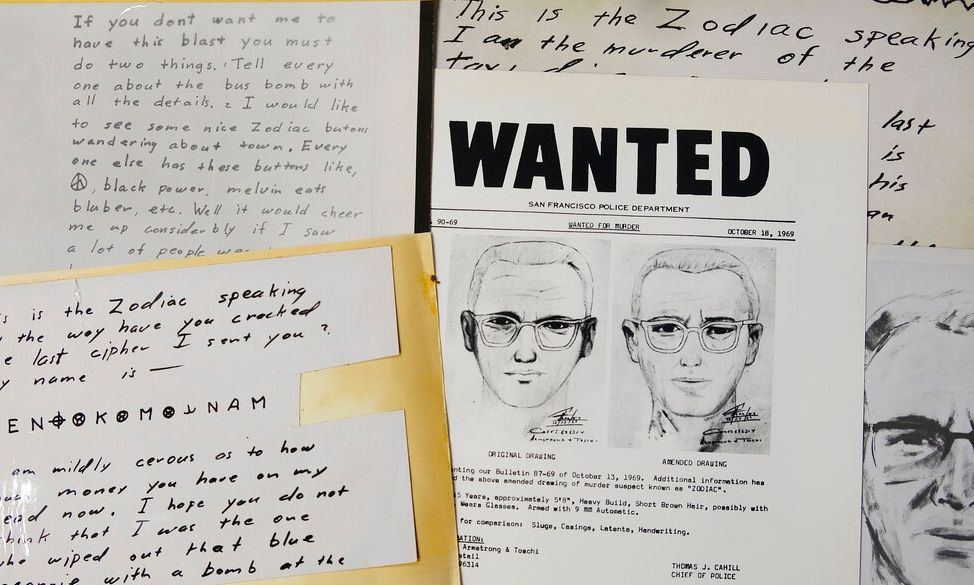 If you dont want me to
have this blast you must
do two things. Tell every
one about the bus bomb with
all the details. 2 I would like
to see some nice Zodiac butons
wandering about town. Every
one else has these buttons like,
☮, black power, melvin eats
bluber, etc. Well it would cheer
me up considerbly if I saw
a lot of people
This is the Zodiac speaking
I am the murderer of the
last
is
his
is the Zodiac speaking
the way have you cracked
last cipher I sent you?
name is —
am mildly cerous as to how
money you have on my
now. I hope you do not
think that I was the one
who wiped out that blue
with a bomb at the
WANTED
SAN FRANCISCO POLICE DEPARTMENT
90-69 WANTED FOR MURDER OCTOBER 18, 1969
ORIGINAL DRAWING AMENDED DRAWING
our Bulletin 87-69 of October 13, 1969. Additional information has
the above amended drawing of murder suspect known as "ZODIAC".
Years, approximately 5'8", Heavy Build, Short Brown Hair, possibly with
Wears Glasses. Armed with 9 MM Automatic.
for comparison: Slugs, Casings, Latents, Handwriting.
Armstrong & Toschi
THOMAS J. CAHILL
CHIEF OF POLICE